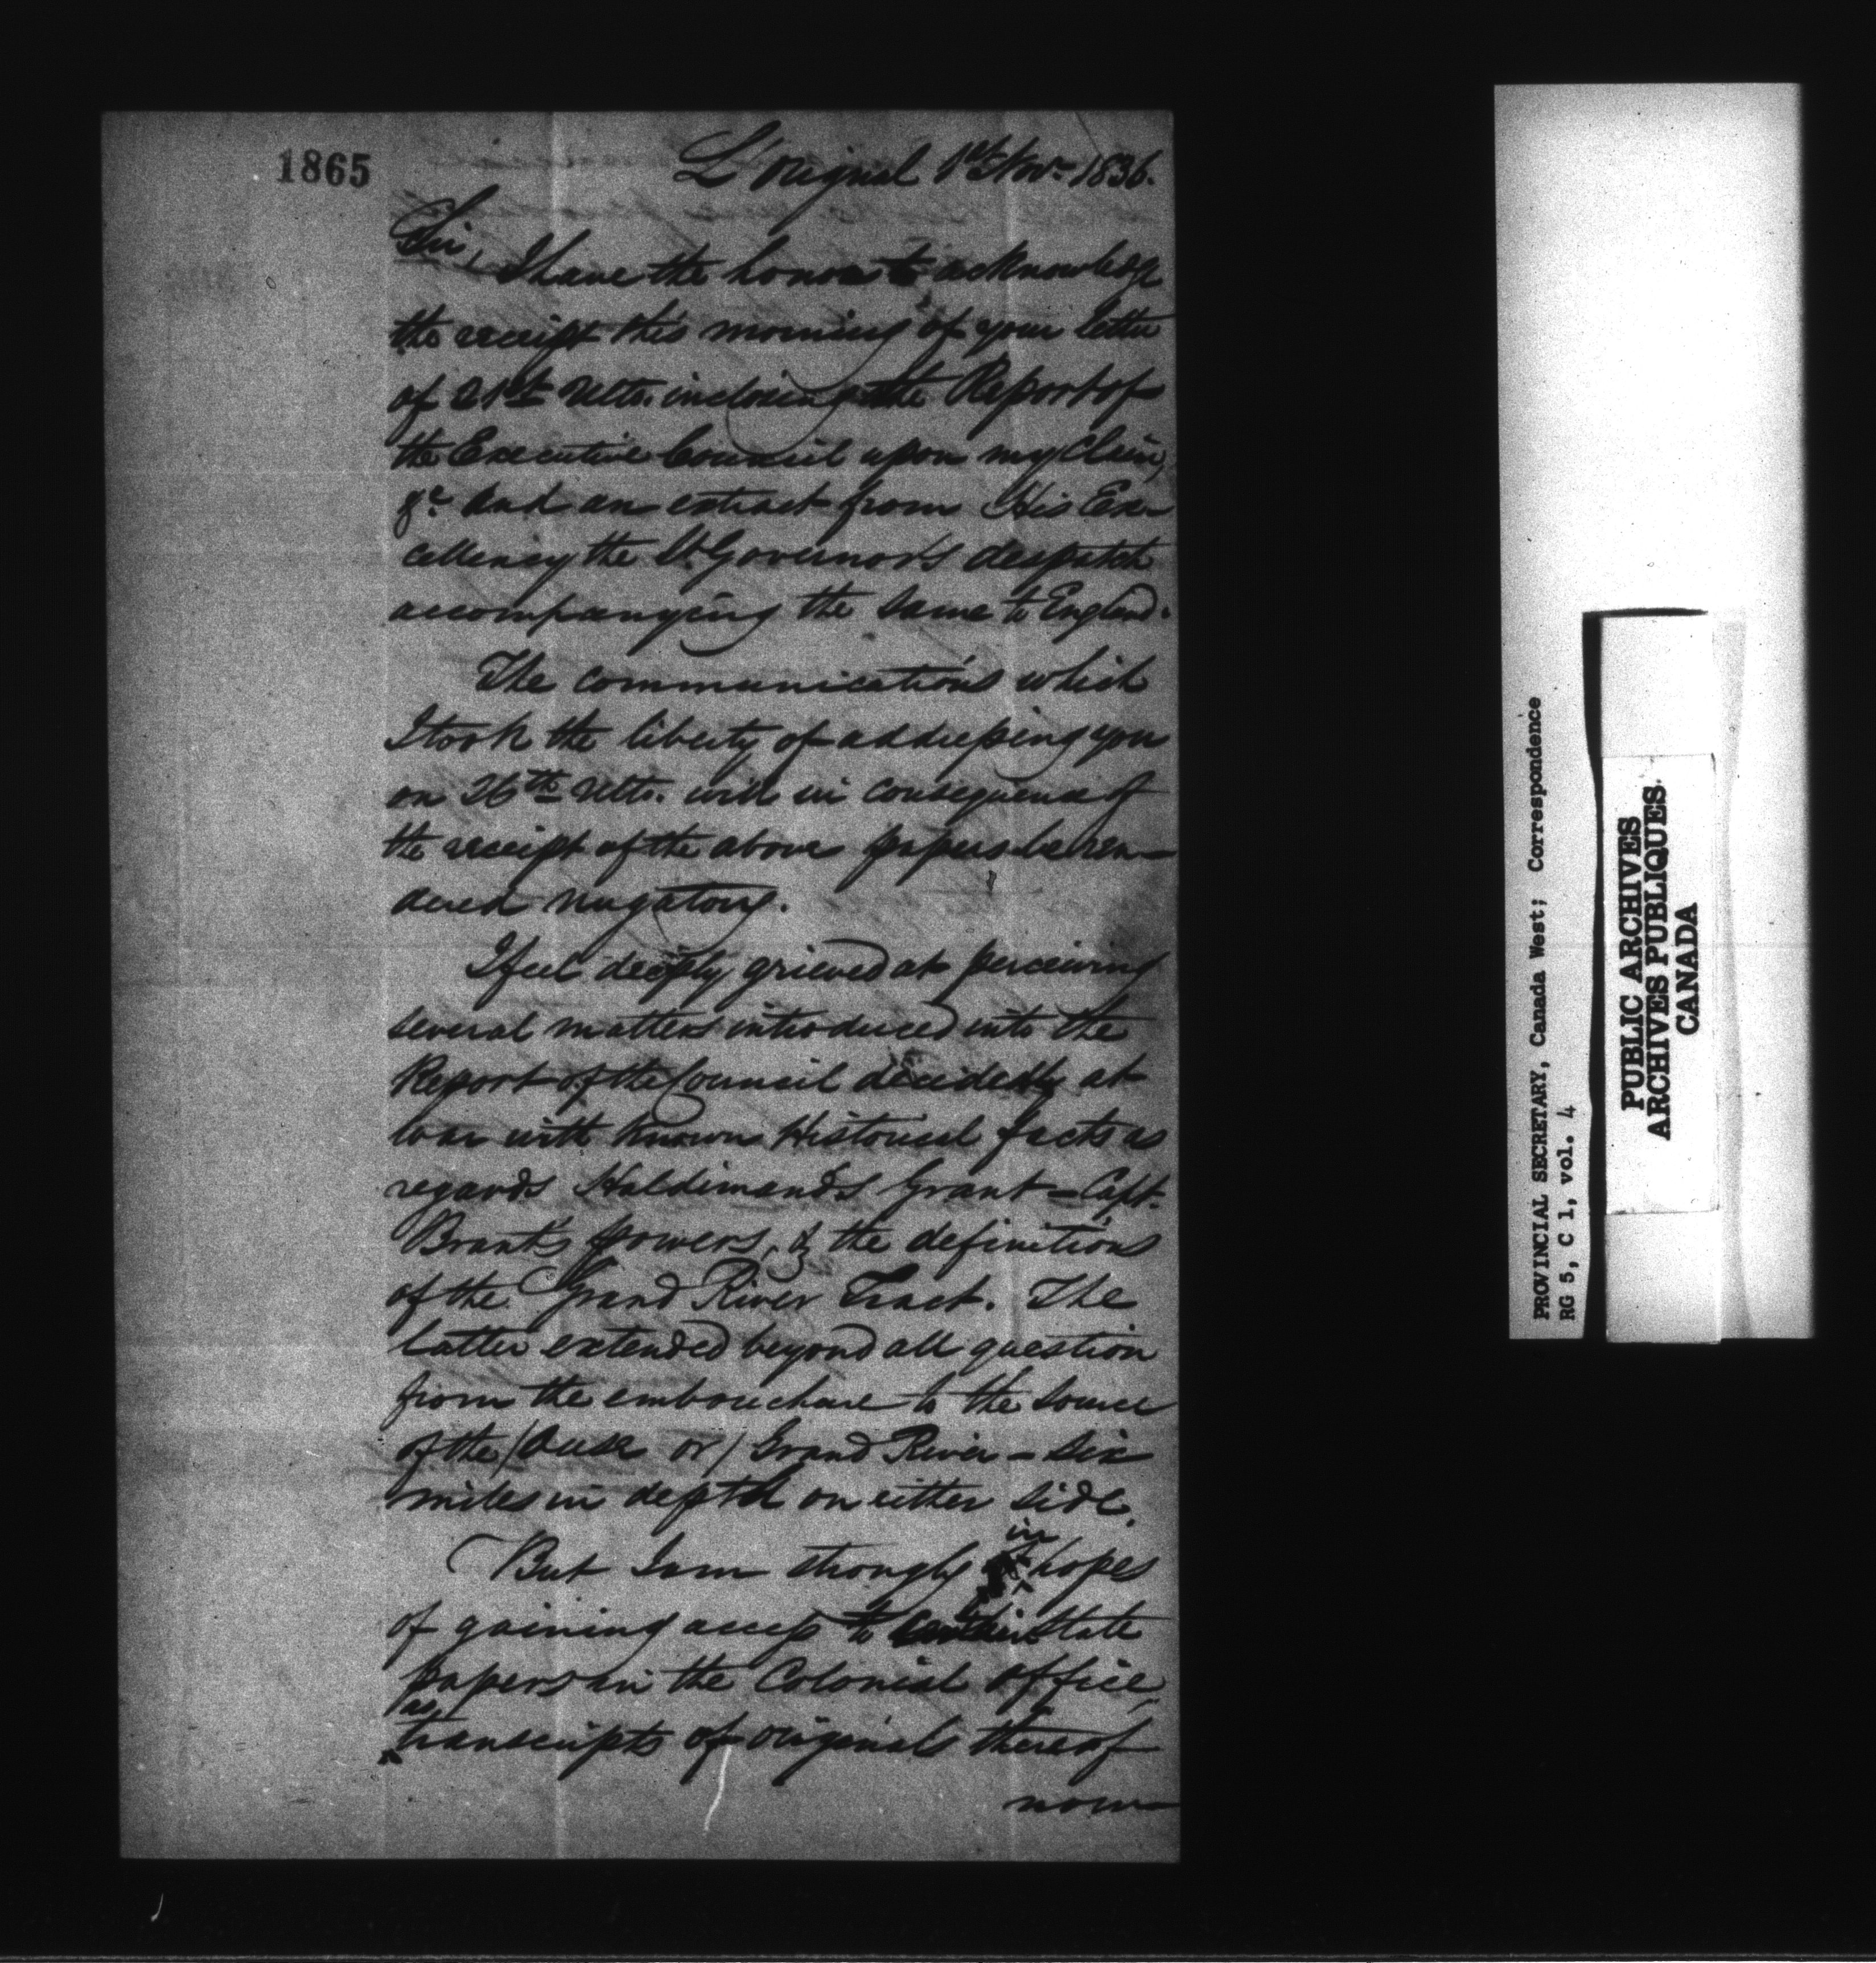 1865
L'Orignal 1st Novr 1836.
Sir,
I have the honor to acknowledge
the receipt this morning of your letter
of 21st Ulto. inclosing the Report of
the Executive Council upon my Claim,
&c and an extract from His Ex-
cellency the Lt. Governor's despatch
accompanying the same to England.
The communications which
I took the liberty of addressing you
on 26th Ulto. will in consequence of
the receipt of the above papers be ren-
dered nugatory.
I feel deeply grieved at perceiving
several matters introduced into the
Report of the Council decidedly at
war with known Historical facts as
regards Haldimand's Grant - Capt.
Brant's powers, & the definitions
of the Grand River Tract. The
latter extended beyond all question
from the embouchure to the source
of the (Ouse or) Grand River - six
miles in depth on either side.
But I am strongly in hopes
of gaining access to certain State
papers in the Colonial office,
as transcripts of originals thereof
now
PROVINCIAL SECRETARY, Canada West; Correspondence
RG 5, C 1, vol. 4
PUBLIC ARCHIVES
ARCHIVES PUBLIQUES
CANADA